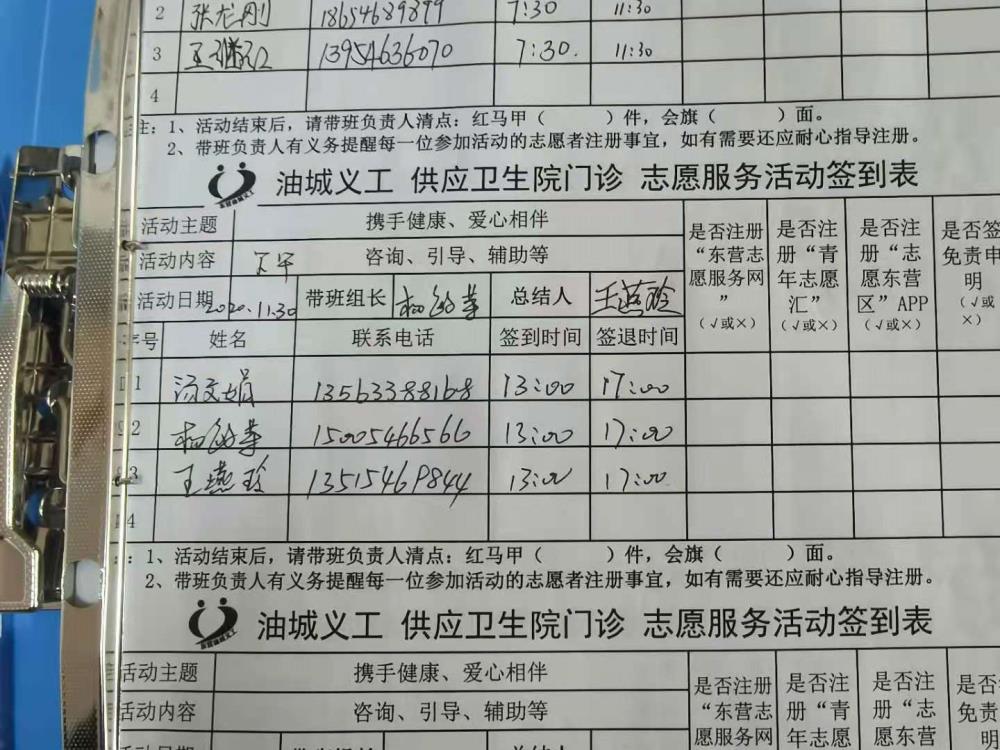 2 张龙刚 18654689899 7:30 11:30
3 13954636070 7:30. 11:30
4
注：1、活动结束后，请带班负责人清点：红马甲（ ）件，会旗（ ）面。
2、带班负责人有义务提醒每一位参加活动的志愿者注册事宜，如有需要还应耐心指导注册。
油城义工 供应卫生院门诊 志愿服务活动签到表
活动主题 携手健康、爱心相伴 是否注册“东营志愿服务网”（√或×） 是否注册“青年志愿汇”（√或×） 是否注册“志愿东营区”APP（√或×） 是否签免责申明（√或×）
活动内容 下午 咨询、引导、辅助等
活动日期 2020.11.30 带班组长 总结人 王燕玲
序号 姓名 联系电话 签到时间 签退时间
1 汤文娟 13563388168 13:00 17:00
2 15005466566 13:00 17:00
3 王燕玲 13515469844 13:00 17:00
4
：1、活动结束后，请带班负责人清点：红马甲（ ）件，会旗（ ）面。
2、带班负责人有义务提醒每一位参加活动的志愿者注册事宜，如有需要还应耐心指导注册。
油城义工 供应卫生院门诊 志愿服务活动签到表
活动主题 携手健康、爱心相伴 是否注册“东营志愿服务网 是否注册“青年志愿 是否注册“志愿东营 是否免责明
活动内容 咨询、引导、辅助等